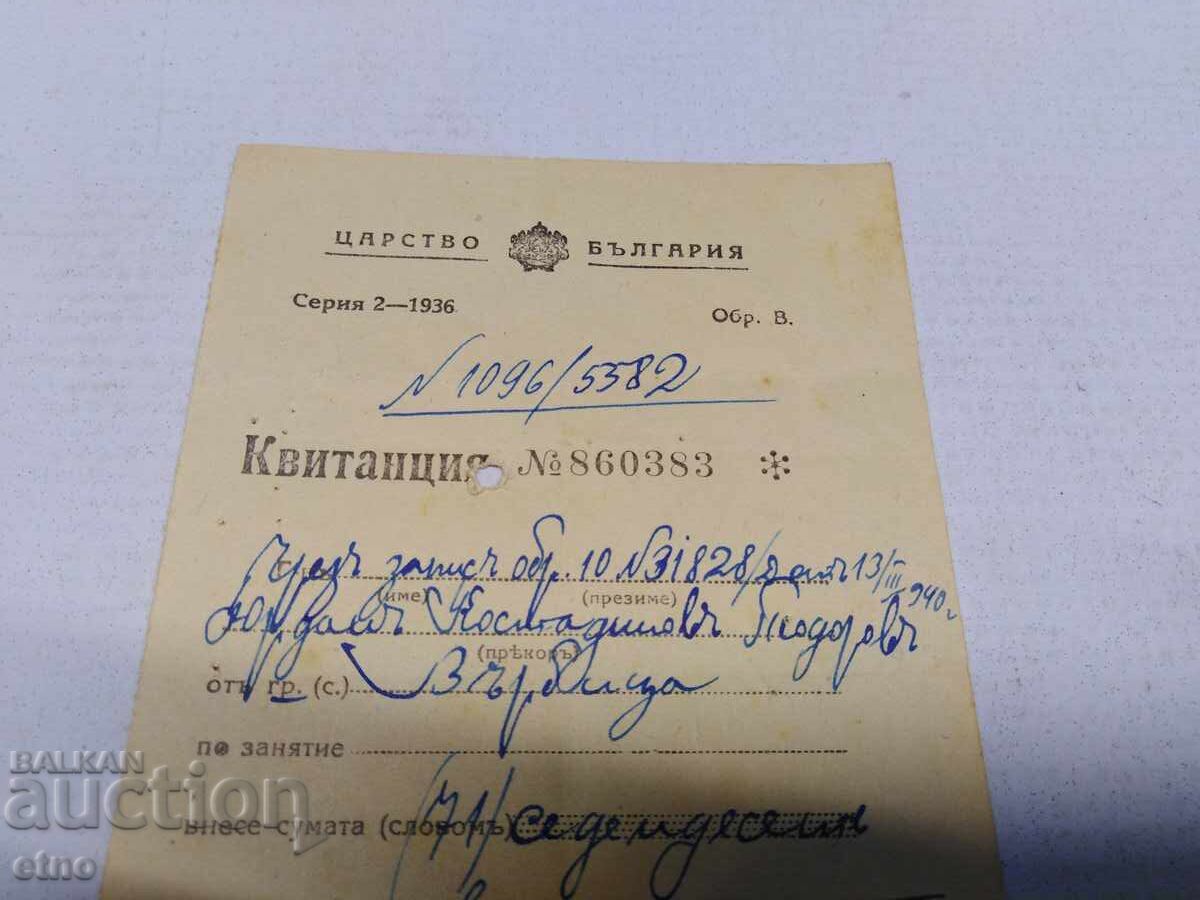 ЦАРСТВО БЪЛГАРИЯ
Серия 2—1936 Обр. В.
N 1096/5582
Квитанция № 860383
Чрезъ записъ обр. 10 N 31828/ отъ 13/III 940 г
(име) (презиме)
Юрданъ Костадиновъ Тодоровъ
(прѣкоръ)
отъ гр. (с.) Върбица
по занятие
внесе сумата (словомъ) (71) седемдесетъ
BALKAN
auction
etno